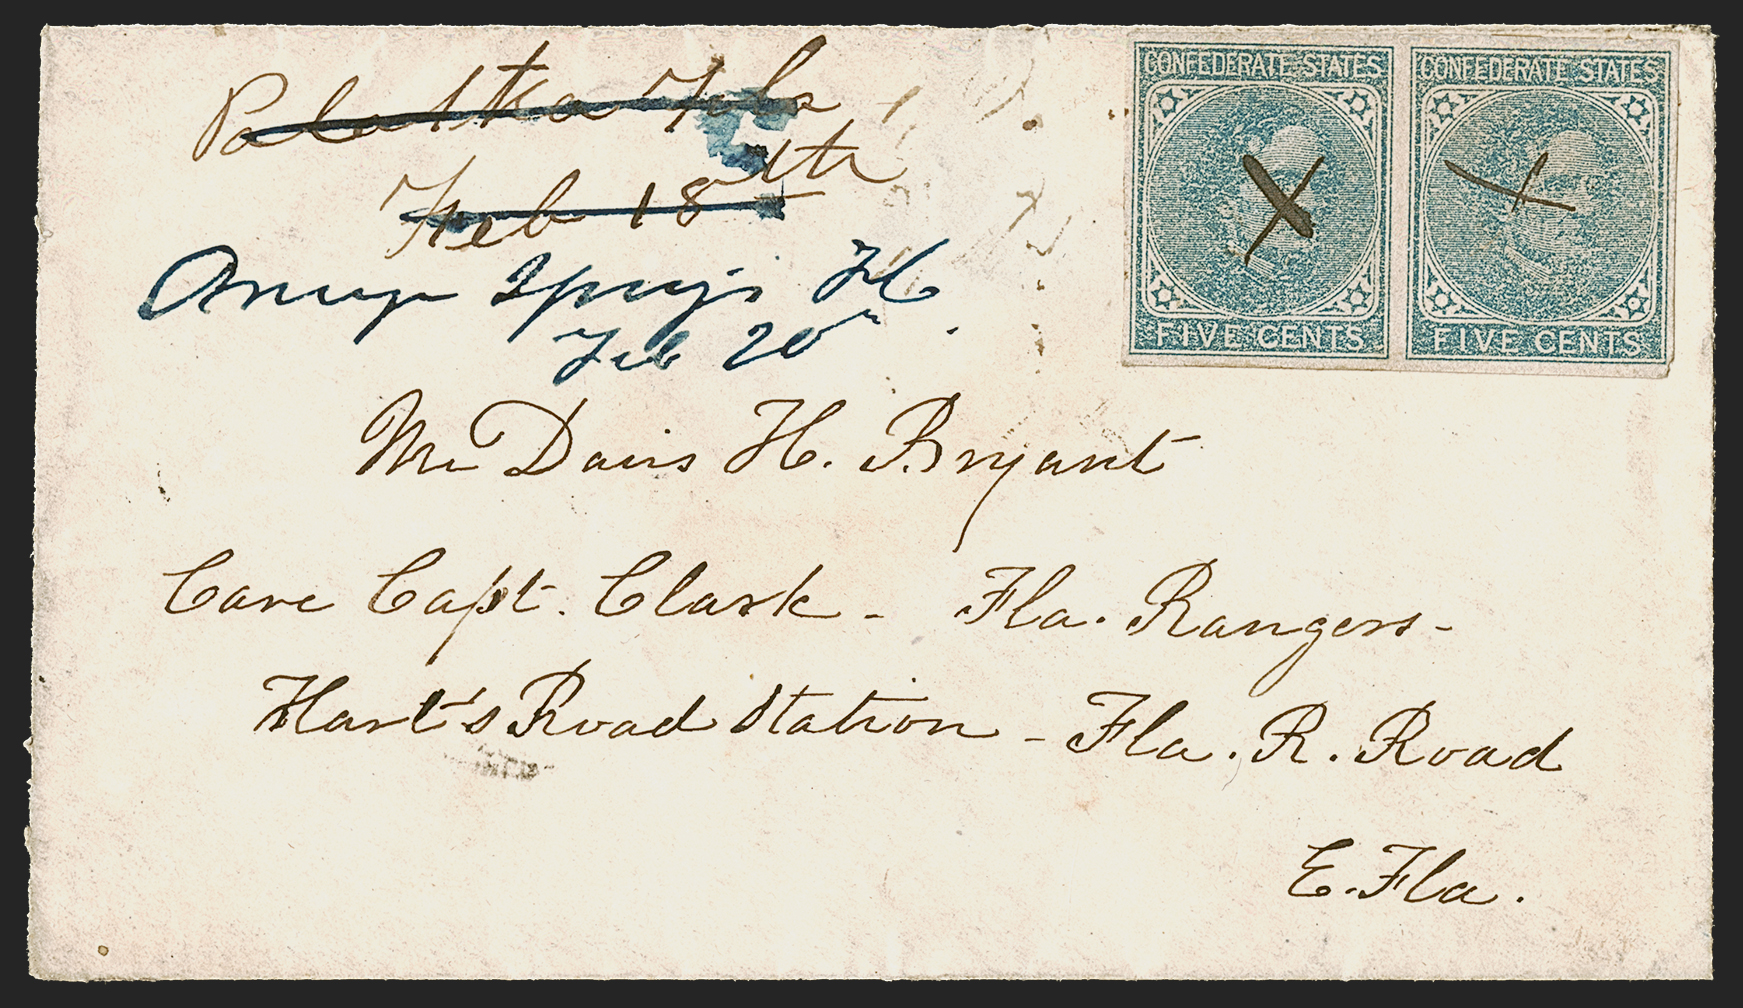 Palatka Fla
Feb 18th
Orange Springs Fl
Feb 20th
CONFEDERATE STATES
FIVE CENTS
CONFEDERATE STATES
FIVE CENTS
Mr Davis H. Bryant
Care Capt. Clark - Fla. Rangers -
Hart's Road Station - Fla. R. Road
E. Fla.